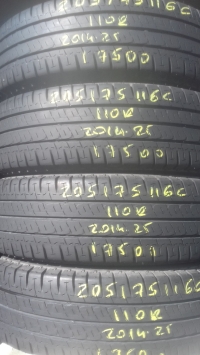 205/75/16C
110R
2014.25
17500
205/75/16C
110R
2014.25
17500
205/75/16C
110R
2014.25
17500
205/75/16C
110R
2014.25